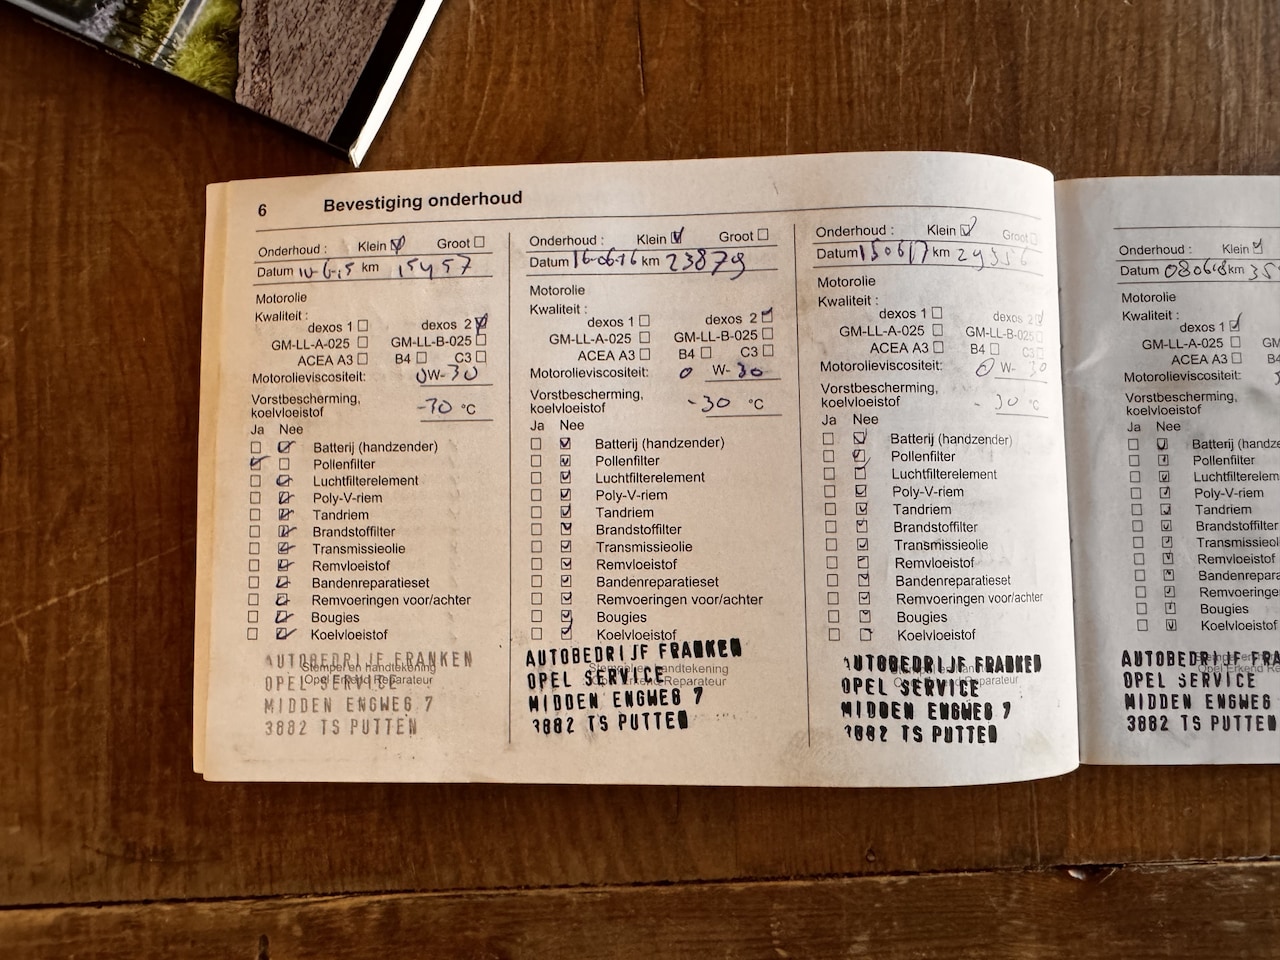 6 Bevestiging onderhoud
Onderhoud : Klein Groot
Datum 10-6-15 km 15457
Motorolie
Kwaliteit :
dexos 1 dexos 2
GM-LL-A-025 GM-LL-B-025
ACEA A3 B4 C3
Motorolieviscositeit: 0 W- 30
Vorstbescherming,
koelvloeistof °C
Ja Nee
Batterij (handzender)
Pollenfilter
Luchtfilterelement
Poly-V-riem
Tandriem
Brandstoffilter
Transmissieolie
Remvloeistof
Bandenreparatieset
Remvoeringen voor/achter
Bougies
Koelvloeistof
Stempel en handtekening
Opel Erkend Reparateur
AUTOBEDRIJF FRANKEN
OPEL SERVICE
MIDDEN ENGWEG 7
3882 TS PUTTEN
Onderhoud : Klein Groot
Datum 16-06-16 km 23879
Motorolie
Kwaliteit :
dexos 1 dexos 2
GM-LL-A-025 GM-LL-B-025
ACEA A3 B4 C3
Motorolieviscositeit: 0 W- 30
Vorstbescherming,
koelvloeistof -30 °C
Ja Nee
Batterij (handzender)
Pollenfilter
Luchtfilterelement
Poly-V-riem
Tandriem
Brandstoffilter
Transmissieolie
Remvloeistof
Bandenreparatieset
Remvoeringen voor/achter
Bougies
Koelvloeistof
Stempel en handtekening
Opel Erkend Reparateur
AUTOBEDRIJF FRANKEN
OPEL SERVICE
MIDDEN ENGWEG 7
3882 TS PUTTEN
Onderhoud : Klein Groot
Datum 150617 km 29356
Motorolie
Kwaliteit :
dexos 1 dexos 2
GM-LL-A-025 GM-LL-B-025
ACEA A3 B4 C3
Motorolieviscositeit: 0 W- 30
Vorstbescherming,
koelvloeistof - 30 °C
Ja Nee
Batterij (handzender)
Pollenfilter
Luchtfilterelement
Poly-V-riem
Tandriem
Brandstoffilter
Transmissieolie
Remvloeistof
Bandenreparatieset
Remvoeringen voor/achter
Bougies
Koelvloeistof
Reparateur
AUTOBEDRIJF FRANKEN
OPEL SERVICE
MIDDEN ENGWEG 7
3882 TS PUTTEN
Onderhoud : Klein
Datum 080618 km 35
Motorolie
Kwaliteit :
dexos 1
GM-LL-A-025 GM
ACEA A3 B4
Motorolieviscositeit:
Vorstbescherming,
koelvloeistof
Ja Nee
Batterij (handze
Pollenfilter
Luchtfilterelem
Poly-V-riem
Tandriem
Brandstoffilter
Transmissieolie
Remvloeistof
Bandenrepara
Remvoeringe
Bougies
Koelvloeistof
Opel Erkend Re
AUTOBEDRIJF FRA
OPEL SERVICE
MIDDEN ENGWEG
3882 TS PUTTE